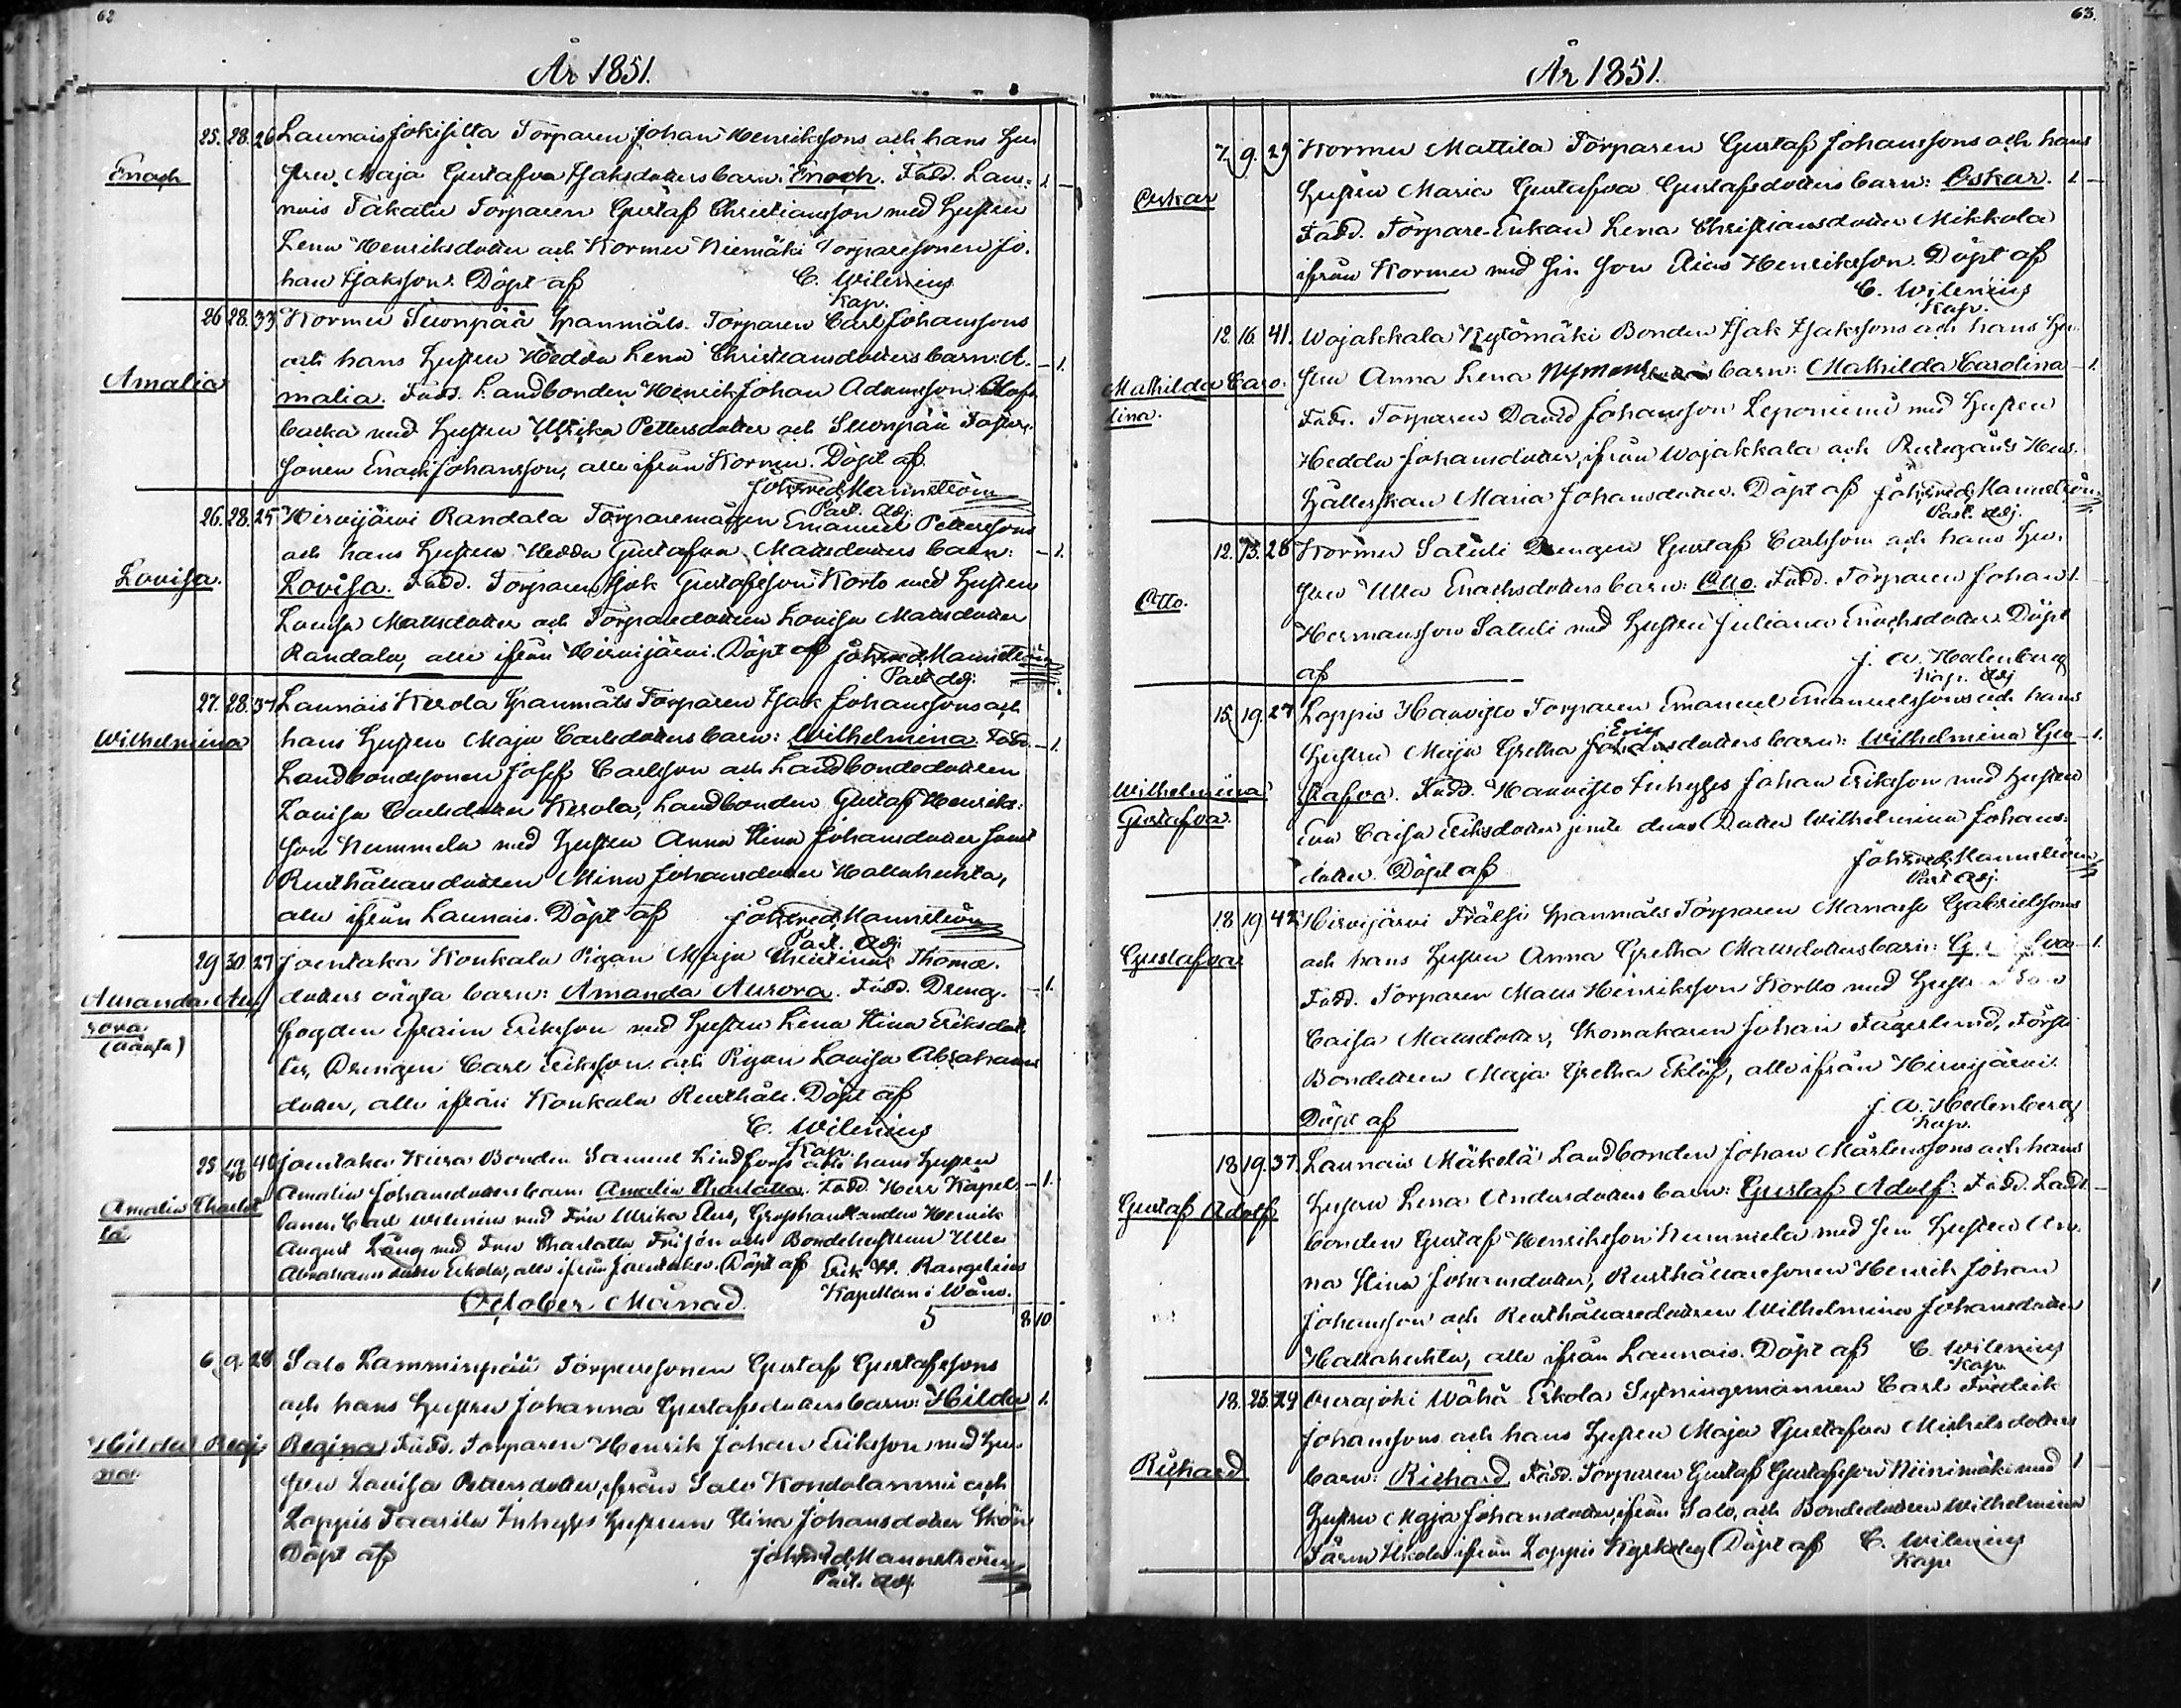 62
År 1851.
25. 28. 26 Launais Jokisilta Torparen Johan Henrikssons och hans Hu
Enoch
stru Maja Gustafva Isaksdotters barn: Enoch. Fadd. Lau- 1. –
nais Takala Torparen Gustaf Christiansson med Hustru
Lena Henriksdotter och Kormu Niemäki Torparesonen Jo-
han Isaksson. Döpt af C. Wilenius
Kap.
26 28. 33 Kormu Suonpää Spanmåls Torparen Carl Johanssons
och hans Hustru Hedda Lena Christiansdotters barn: A- – 1.
Amalia
malia. Fadd. Landbonden Henrik Johan Adamsson
backa med Hustru Ulrika Pettersdotter och Suonpää Torpare-
sonen Enoch Johansson, alle ifrån Kormu. Döpt af
Joh: Fred: Mannström
Past. Adj.
26. 28. 25 Hirvijärvi Randala Torparemågen Emanuel Petterssons
och hans Hustru Hedda Gustafva Mattsdotters barn: – 1.
Lovisa.
Lovisa. Fadd. Torparen Isak Gustafsson Korto med Hustru
Lovisa Mattsdotter och Torparedottren Lovisa Mattsdotter
Randala, alle ifrån Hirvijärvi. Döpt af Joh: Fred: Mannström
Past. Adj:
27. 28. 37 Launais Kerola Spanmåls Torparen Isak Johanssons och
Wilhelmina
hans Hustru Maja Carlsdotters barn: Wilhelmina. Fadd. – 1.
Landbondesonen Josef Carlsson och Landbondedottren
Lovisa Carlsdotter Kerola, Landbonden Gustaf Henriks-
son Nummela med Hustru Anna Stina Johansdotter samt
Rusthållaredottren Mina Johansdotter Hallakuhta,
alla ifrån Launais. Döpt af Joh: Fred: Mannström
Past. Adj:
29 30 27 Joentaka Konkala Pigan Maja Christina Thomæ-
Amanda Au-
rora
(oäkta)
dotters oägta barn: Amanda Aurora. Fadd. Dreng- – 1.
fogden Efraim Eriksson med Hustru Lena Stina Eriksdot-
ter, Drengen Carl Eriksson och Pigan Lovisa Abrahams
dotter, alle ifrån Konkala Rusthåll. Döpt af
C. Wilenius
Kap.
Joentaka Kiira Bonden Samuel Lindfors och hans Hustru
Amalia Charlot
ta
Amalia Johansdotters barn Amalia Charlotta. Fadd. Herr Kapel- – 1.
lanen Carl Wilenius med Fru Ulrika, Grosshandlanden Henrik
August Lång med Fru Charlotta Frisén och Bondehustrun Ulla
Abrahamsdotter Erkola, alle ifrån Joentaka. Döpt af Erik W. Rangelius
Kapellan i Wånå.
October Månad. 5 8 10
6. 9. 28 Salo Lamminpää Torparesonen Gustaf Gustafssons
och hans Hustru Johanna Gustafsdotters barn: Hilda 1.
Hilda Regi-
na
Regina. Fadd. Torparen Henrik Johan Eriksson med Hu-
stru Lovisa Pettersdotter, ifrån Salo Kondolammi och
Loppis Taarila Inhyses Hustrun Stina Johansdotter Skön
Döpt af Joh: Fred: Mannström
Past. Adj.
63.
År 1851.
7. 9. 29 Kormu Mattila Torparen Gustaf Johanssons och hans
Oskar
Hustru Maria Gustafva Gustafsdotters barn: Oskar. 1. –
Fadd. Torpare-Enkan Lena Christiansdotter Mikkola
ifrån Kormu med sin Son Elias Henriksson. Döpt af
C. Wilenius
Kap.
12. 16. 41. Wojakkala Kytömäki Bonden Isak Isakssons och hans Hu-
Mathilda Caro-
lina.
stru Anna Lena Nymans barn: Mathilda Carolina – 1.
Fadd. Torparen David Johansson Leponiemi med Hustru
Hedda Johansdotter, ifrån Wojakkala och Prestegårds Hus-
hållerskan Maria Johansdotter. Döpt af Joh: Fred: Mannström
Past. Adj.
12. 15. 28 Kormu Satuli Drengen Gustaf Carlssons och hans Hu-
Otto.
stru Ulla Enochsdotters barn: Otto. Fadd. Torparen Johan 1. –
Hermansson Satuli med Hustru Juliana Enochsdotter. Döpt
af J. A. Hedenberg
Kap. Adj
15. 19. 27 Loppis Hauvisto Torparen Emanuel Emanuelssons och hans
Eriks
Hustru Maja Gretha Johansdotters barn: Wilhelmina Gu- – 1.
Wilhelmina
Gustafva.
stafva. Fadd. Hauvisto Inhyses Johan Eriksson med Hustru
Eva Caisa Eriksdotter jemte deras Dotter Wilhelmina Johans-
dotter. Döpt af Joh: Fred: Mannström
Past Adj.
18 19. 42 Hirvijärvi Frälsi Spanmåls Torparen Manasse Gabrielssons
Gustafva
och hans Hustru Anna Gretha Mattsdotters barn: Gustafva – 1.
Fadd. Torparen Matts Henriksson Kortto med Hustru
Caisa Mattsdotter, Skomakaren Johan Fagerlund,
Bondottren Maja Gretha Eklöf, alle ifrån Hirvijärvi.
Döpt af J. A. Hedenberg
Kap.
18 19. 37. Launais Mäkelä Landbonden Johan Mårtenssons och hans
Gustaf Adolf
Hustru Lena Andersdotters barn: Gustaf Adolf. Fadd. Land- –
bonden Gustaf Henriksson Nummela med sin Hustru An-
na Stina Johansdotter, Rusthållaresonen Henrik Johan
Johansson och Rusthållaredottren Wilhelmina Johansdotter
Hallakuhta, alle ifrån Launais. Döpt af C. Wilenius
Kap.
18. 23. 29 Ourajoki Wähä Erkola Sytningsmannen Carl Fredrik
Johanssons och hans Hustru Maja Gustafva Michelsdotters
Richard
barn: Richard. Fadd. Torparen Gustaf Gustafsson Niinimäki med 1
Hustru Maja Johansdotter, ifrån Salo, och Bondedottren Wilhelmina
ifrån Loppis Kyrkoby. Döpt af C. Wilenius
Kap